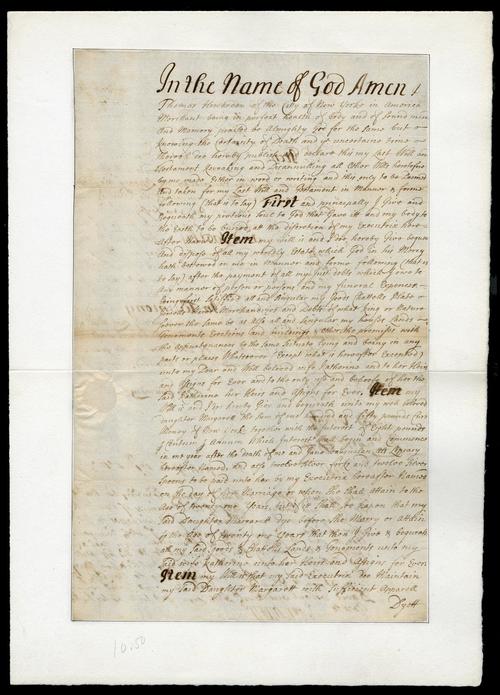 In the Name of God Amen I
Thomas of the City of New Yorke in America
Merchant being in perfect health of body and of sound mind
and Memory praised be Almighty God for the same but
knowing the certainty of Death and ye uncertaine time
thereof doe hereby publish & declare this my Last Will and
Testament Revoaking and Disannulling all other Wills heretofore
by me made Either in word or writing and this only to be Deemed
and taken for my Last Will and Testament in Manner & forme
following (that is to say) First and principally I Give and
Bequeath my pretious Soul to God that Gave itt and my body to
the Earth to be buried at the discretion of my Executrix here
after Named Item my will is and I doe hereby Give bequeath
and dispose of all my worldly Estate which God in his Mercy
hath bestowed on me in Manner and forme following (that is
to say) after the payment of all my just debts which I owe to
any manner of person or persons and my funeral Expences
all and Singular my Goods Chattells Plate
Merchandizes and Debts of what kind or Nature
soever the same be as also all and Singular my houses Lands
Tenements Erections and buildings & other the premises with
the appurtenances to the same Situate Lying and being in any
parts or places Whatsoever (Except what is hereafter Excepted)
unto my Dear and Well beloved wife Katherine and to her Heirs
and Assigns for Ever and to the only use and behoofe of her the
said Katherine her Heirs and Assigns for Ever. Item my
Will is and I doe hereby Give and bequeath unto my well beloved
daughter Margarett the Sum of one hundred and fifty pounds Curr
Money of New York together with the Interest of Eight pounds
Centum Annum Which Interest shall begin and Commence
in one year after the Death of me and
hereafter Named, and also twelve Silver forks and twelve Silver
Spoons to be paid unto her by my Executrix hereafter Named
on the day of her Marriage or when She shall attain to the
Age of twenty one Years, but if it shall so happen that my
said Daughter Margarett dye before She Marry or Attain
to the Age of twenty one Years that then I Give & bequeath
all my said Goods & Chattles Lands & Tenements unto my
said wife Katherine unto her Heires and Assigns for Ever
Item my Will is that my said Executrix doe Maintain
my said Daughter Margarett with Sufficient Apparell
Dyett
10.50